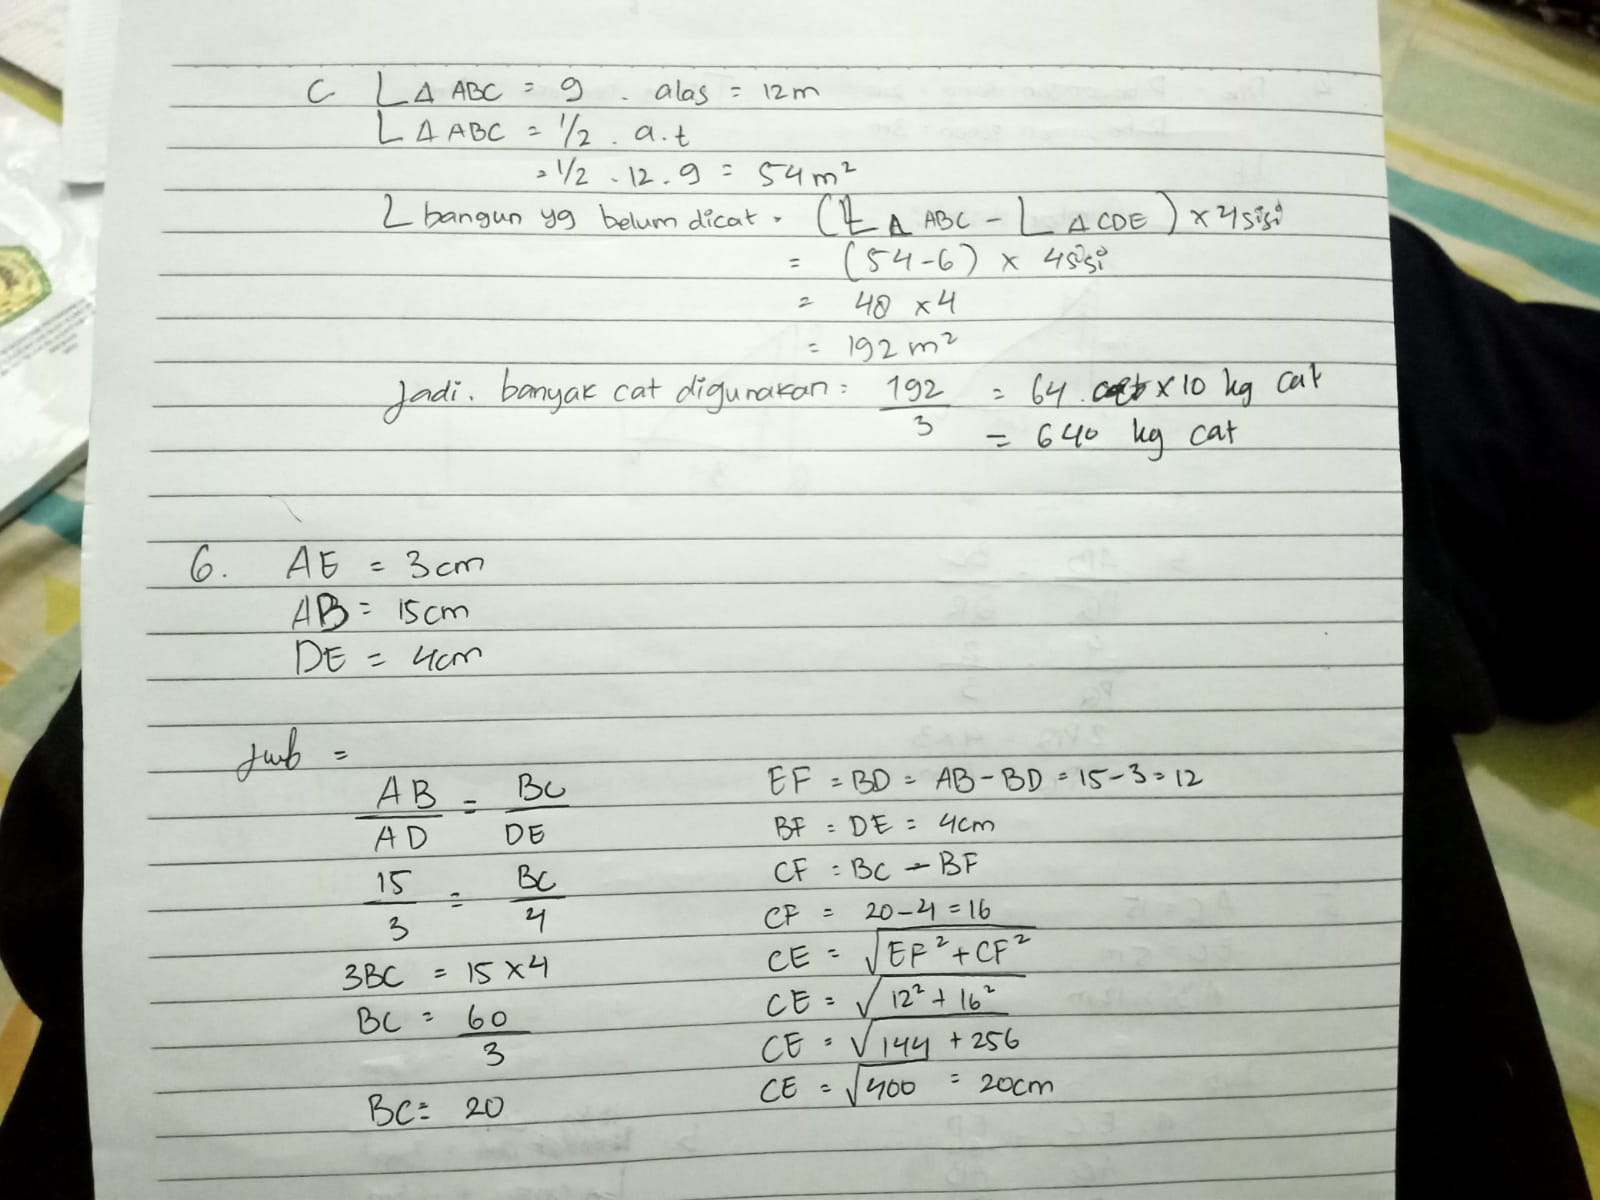 C L Δ ABC = 9 . alas = 12m
L Δ ABC = 1/2 . a.t
= 1/2 . 12 . 9 = 54 m²
L bangun yg belum dicat = (L Δ ABC - L Δ CDE) x 4 sisi
= (54-6) x 4 sisi
= 48 x 4
= 192 m²
Jadi. banyak cat digunakan = 192/3 = 64 . x 10 kg cat
= 640 kg cat
6. AE = 3cm
AB = 15cm
DE = 4cm
Jwb =
AB/AD = BC/DE
15/3 = BC/4
3BC = 15 x 4
BC = 60/3
BC = 20
EF = BD = AB - BD = 15 - 3 = 12
BF = DE = 4cm
CF = BC - BF
CF = 20 - 4 = 16
CE = √EF² + CF²
CE = √12² + 16²
CE = √144 + 256
CE = √400 = 20cm